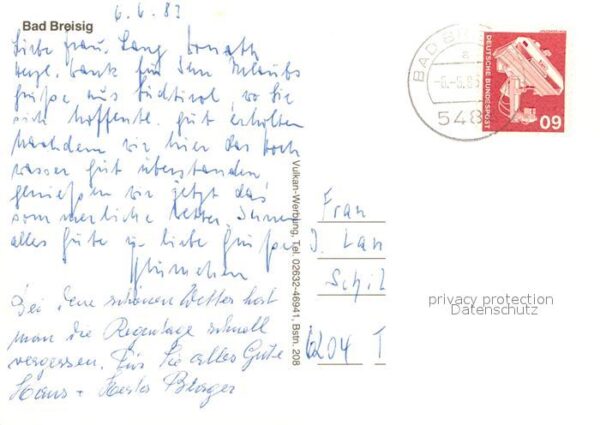 6.6.83
Bad Breisig
Liebe Frau Lang
herzl. Dank für Ihre Urlaubs
grüße aus Südtirol, wo Sie
sich hoffentl. gut erholten
Nachdem wir hier das Hoch
wasser gut überstanden,
genießen wir jetzt das
sommerliche Wetter. Ihnen
alles Gute u. liebe Grüße
Bei dem schönen Wetter hat
man die Regentage schnell
vergessen. Für Sie alles Gute
Hans +
Vulkan-Werbung, Tel. 02632-46941, Bstn. 208
Frau
J. Lan
Schil
6204 T
BAD BR
548
DEUTSCHE BUNDESPOST
60
privacy protection
Datenschutz